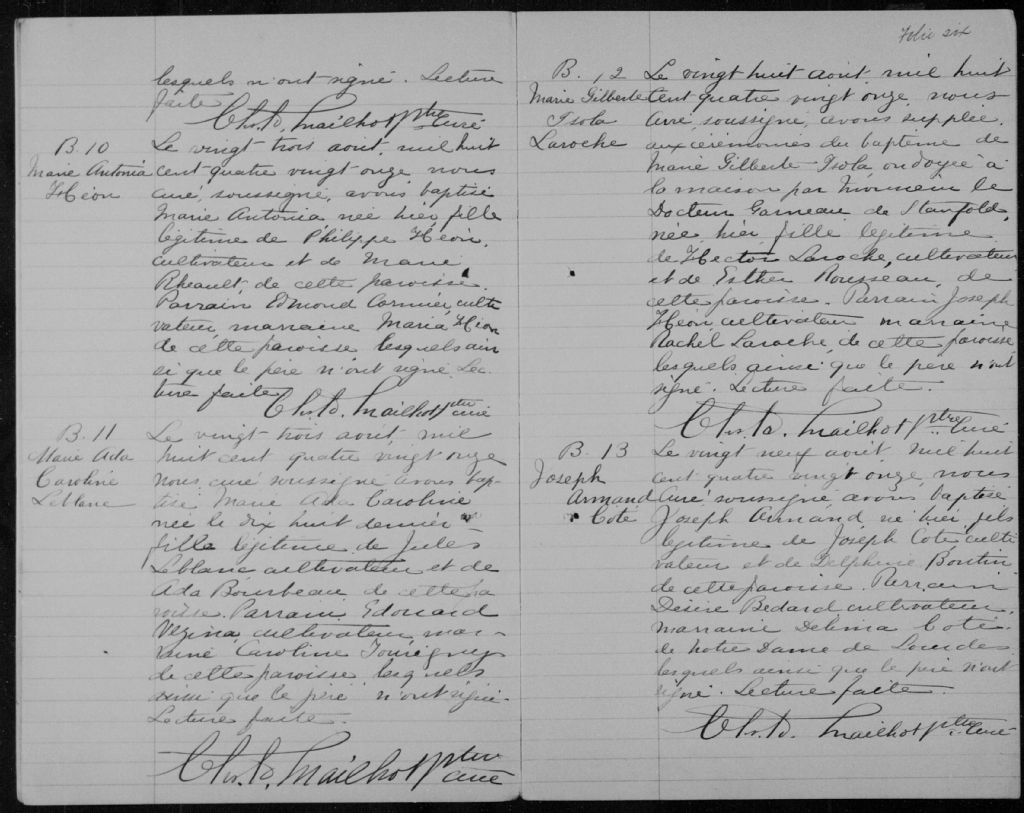 lesquels n'ont signé. Lecture
faite
Chs. D. Mailhot ptre curé
B. 10
Marie Antonia
Héon
Le vingt trois aout, mil huit
cent quatre vingt onze nous
curé, soussigné, avons baptisé
Marie Antonia née hier, fille
légitime de Philippe Héon,
cultivateur et de Marie
Rheault, de cette paroisse.
Parrain Edmond Cormier, culti
vateur, marraine Maria Héon
de cette paroisse lesquels ain
si que le père n'ont signé. Lec
ture faite.
Chs. D. Mailhot ptre curé
B. 11
Marie Ada
Caroline
Leblanc
Le vingt trois aout, mil
huit cent quatre vingt onze
nous, curé soussigné avons bap-
tisé Marie Ada Caroline
née le dix huit dernier
fille légitime de Jules
Leblanc cultivateur et de
Ada Bourbeau, de cette pa
roisse. Parrain Edouard
Vezina, cultivateur, mar-
raine Caroline Tourigny
de cette paroisse lesquels
ainsi que le père n'ont signé.
Lecture faite.
Chs. D. Mailhot ptre curé
Folio six
B. 12
Marie Gilberte
Isola
Laroche
Le vingt huit aout, mil huit
cent quatre vingt onze, nous
curé, soussigné, avons supplée,
aux cérémonies du baptême de
Marie Gilberte Isola, ondoyée à
la maison par Monsieur le
Docteur Garneau de Stanfold,
née hier, fille légitime
de Hector Laroche, cultivateur
et de Esther Rousseau, de
cette paroisse. Parrain Joseph
Héon, cultivateur marraine
Rachel Laroche, de cette paroisse,
lesquels ainsi que le père n'ont
signé. Lecture faite.
Chs. D. Mailhot ptre curé
B. 13
Joseph
Armand
Coté
Le vingt neuf août, mil huit
cent quatre vingt onze, nous
curé soussigné avons baptisé
Joseph Armand né hier, fils
légitime de Joseph Coté, culti
vateur et de Delphine Boutin
de cette paroisse. Parrain
Désiré Bedard cultivateur,
marraine Delima Coté
de Notre Dame de Lourdes
lesquels ainsi que le père n'ont
signé. Lecture faite.
Chs. D. Mailhot ptre curé